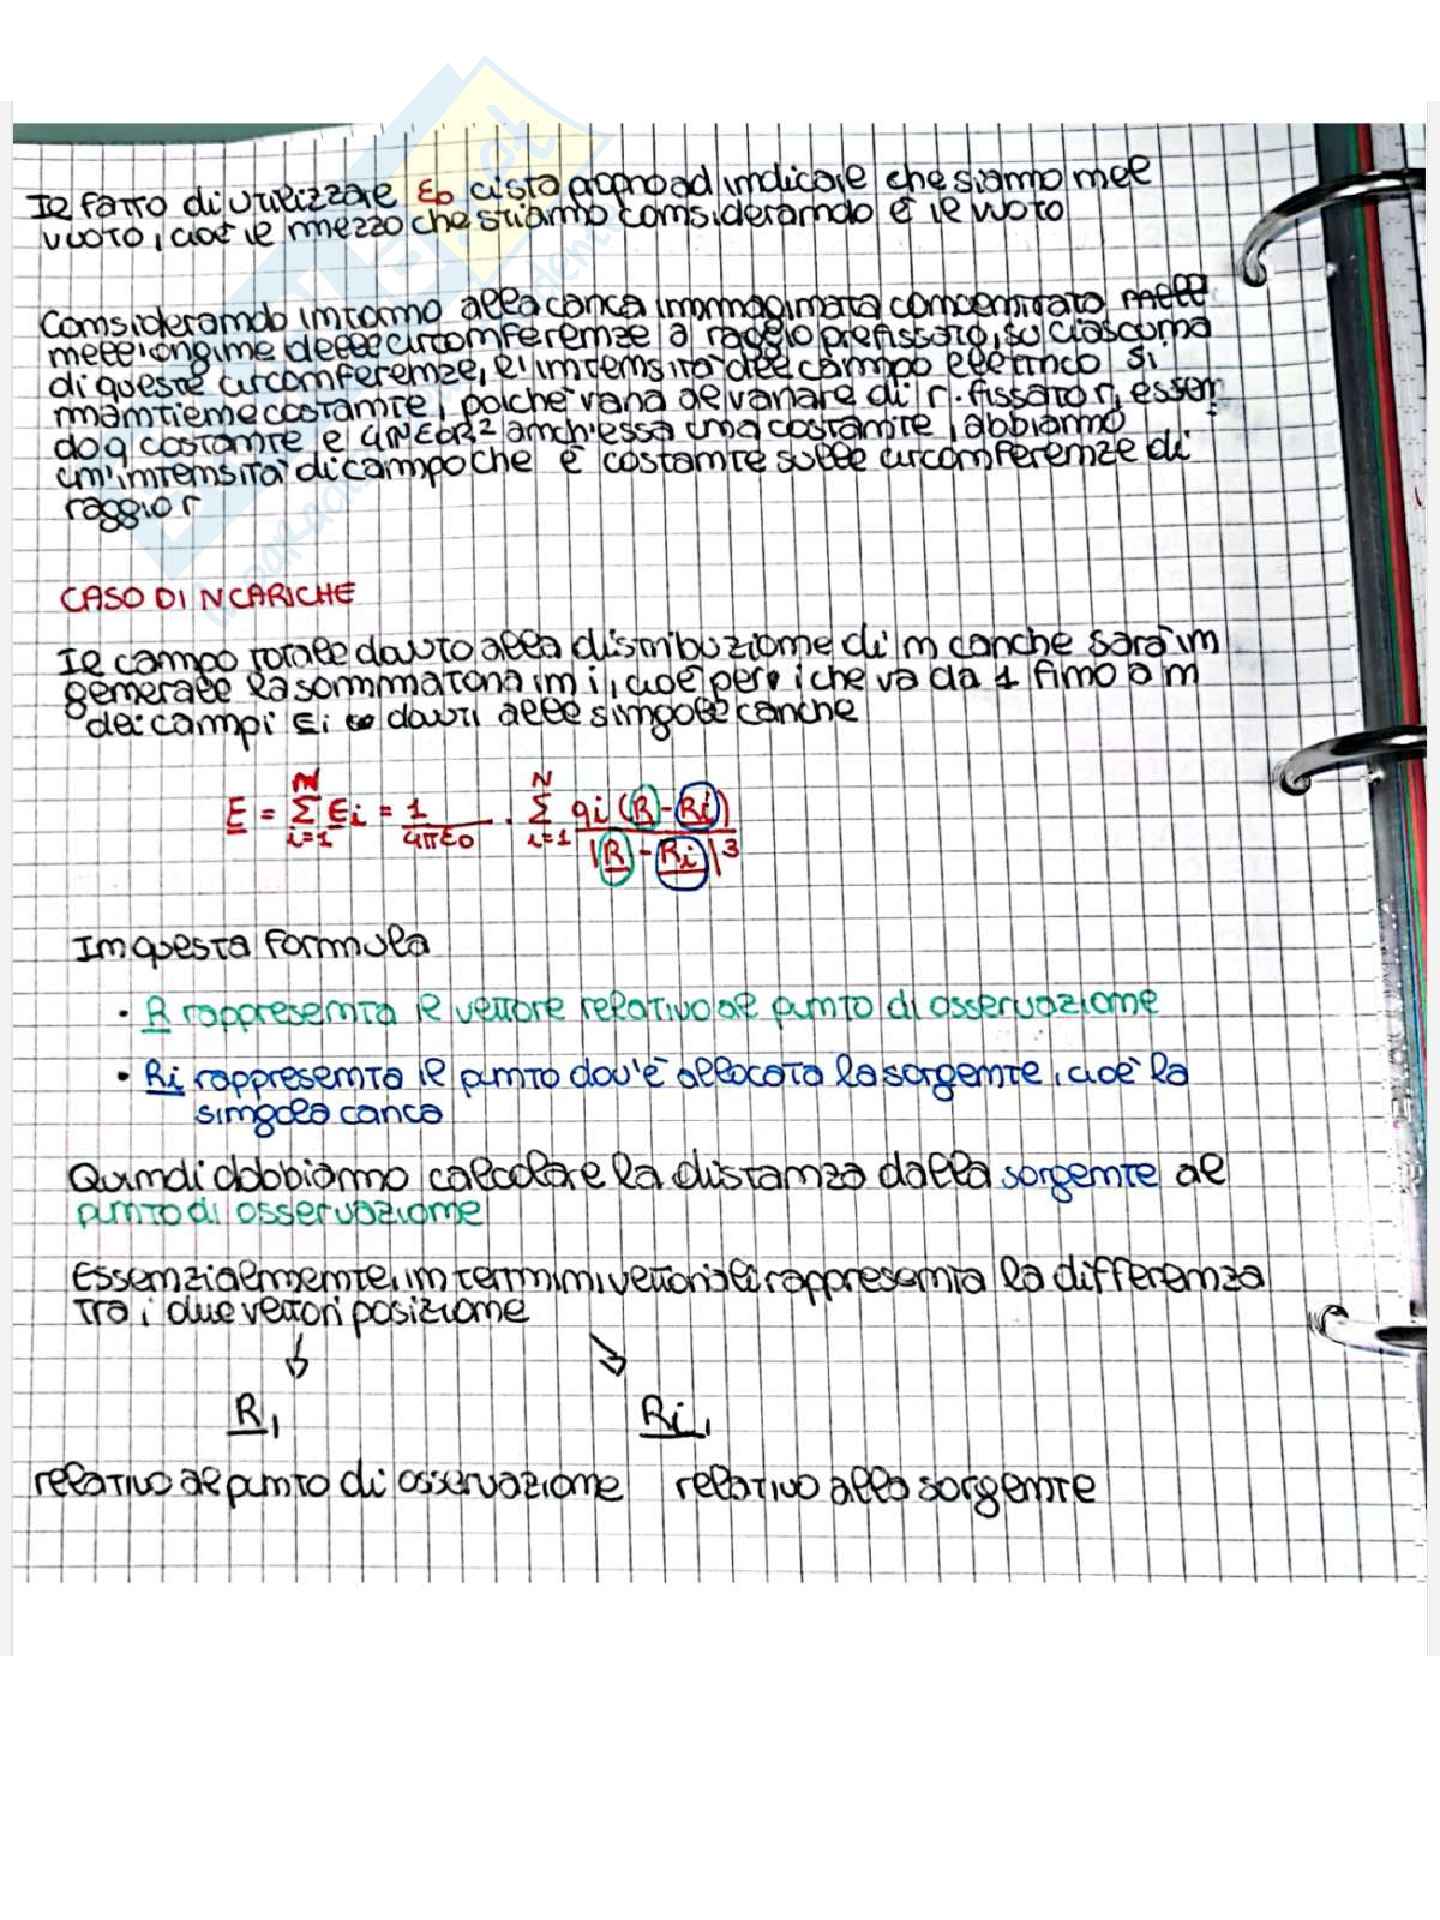 Il fatto di utilizzare ε0 ci sta proprio ad indicare che siamo nel
vuoto, cioè il mezzo che stiamo considerando è il vuoto
Considerando intorno alla carica immaginata concentrato nell
nell'origine delle circonferenze a raggio prefissato, su ciascuna
di queste circonferenze, l'intensità del campo elettrico si
mantiene costante, poiché varia al variare di r. fissato r, essen
do q costante e 4πε0R² anch'essa una costante, abbiamo
un'intensità di campo che è costante sulle circonferenze di
raggio r
CASO DI N CARICHE
Il campo totale dovuto alla distribuzione di n cariche sarà in
generale la sommatoria in i, cioè per i che va da 1 fino a n
dei campi Ei dovuti alle singole cariche
E = N Σ i=1 Ei = 1/4πε0 · N Σ i=1 qi (R-Ri)/|R-Ri|³
In questa formula
· R rappresenta il vettore relativo al punto di osservazione
· Ri rappresenta il punto dov'è allocata la sorgente, cioè la
singola carica
Quindi dobbiamo calcolare la distanza dalla sorgente al
punto di osservazione
Essenzialmente, in termini vettoriali rappresenta la differenza
tra i due vettori posizione
R, Ri,
relativo al punto di osservazione relativo alla sorgente